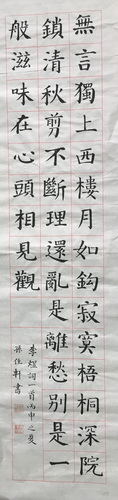 無言獨上西樓月如鈎寂寞梧桐深院
鎖清秋剪不斷理還亂是離愁別是一
般滋味在心頭相見觀
李煜詞一首丙申之夏
孫仕軒書